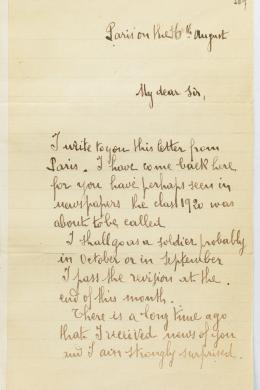 Paris on the 16th August
My dear Sir,
I write to you this letter from
Paris. I have come back here
for you have perhaps seen in
newspapers the class 1920 was
about to be called
I shall go as a soldier probably
in October or in September
I pass the revision at the
end of this month.
There is a long time ago
that I received news of you
and I am strongly surprised.